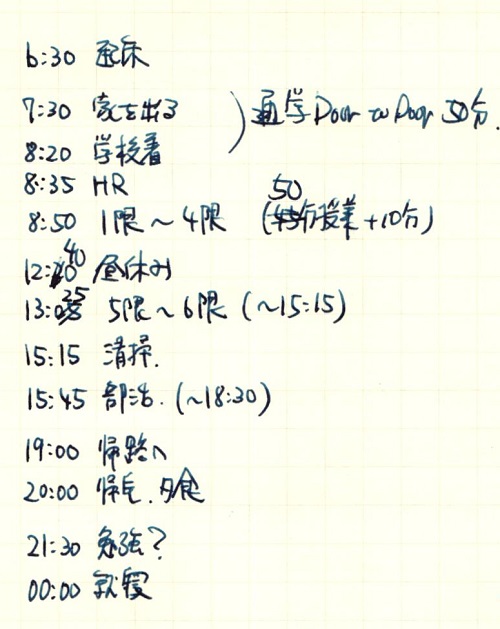 6:30 起床
7:30 家を出る
通学 Door to Door 50分.
8:20 学校着
8:35 HR
8:50 1限～4限 (50分授業+10分)
12:40 昼休み
13:25 5限～6限 (～15:15)
15:15 清掃.
15:45 部活. (～18:30)
19:00 帰路へ
20:00 帰宅. 夕食
21:30 勉強?
00:00 就寝